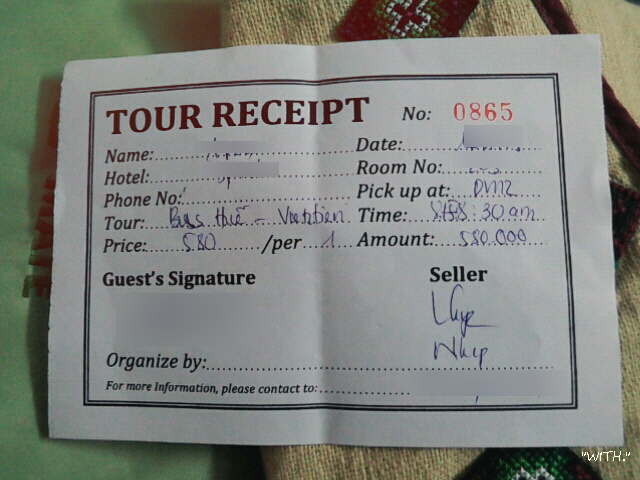 TOUR RECEIPT No: 0865
Name: Date:
Hotel: Room No:
Phone No: Pick up at:
Tour: Bus Huế - Vientien Time: : 30 am
Price: 580 /per 1 Amount: 580.000
Guest's Signature Seller
Organize by:
For more Information, please contact to:
"WITH."